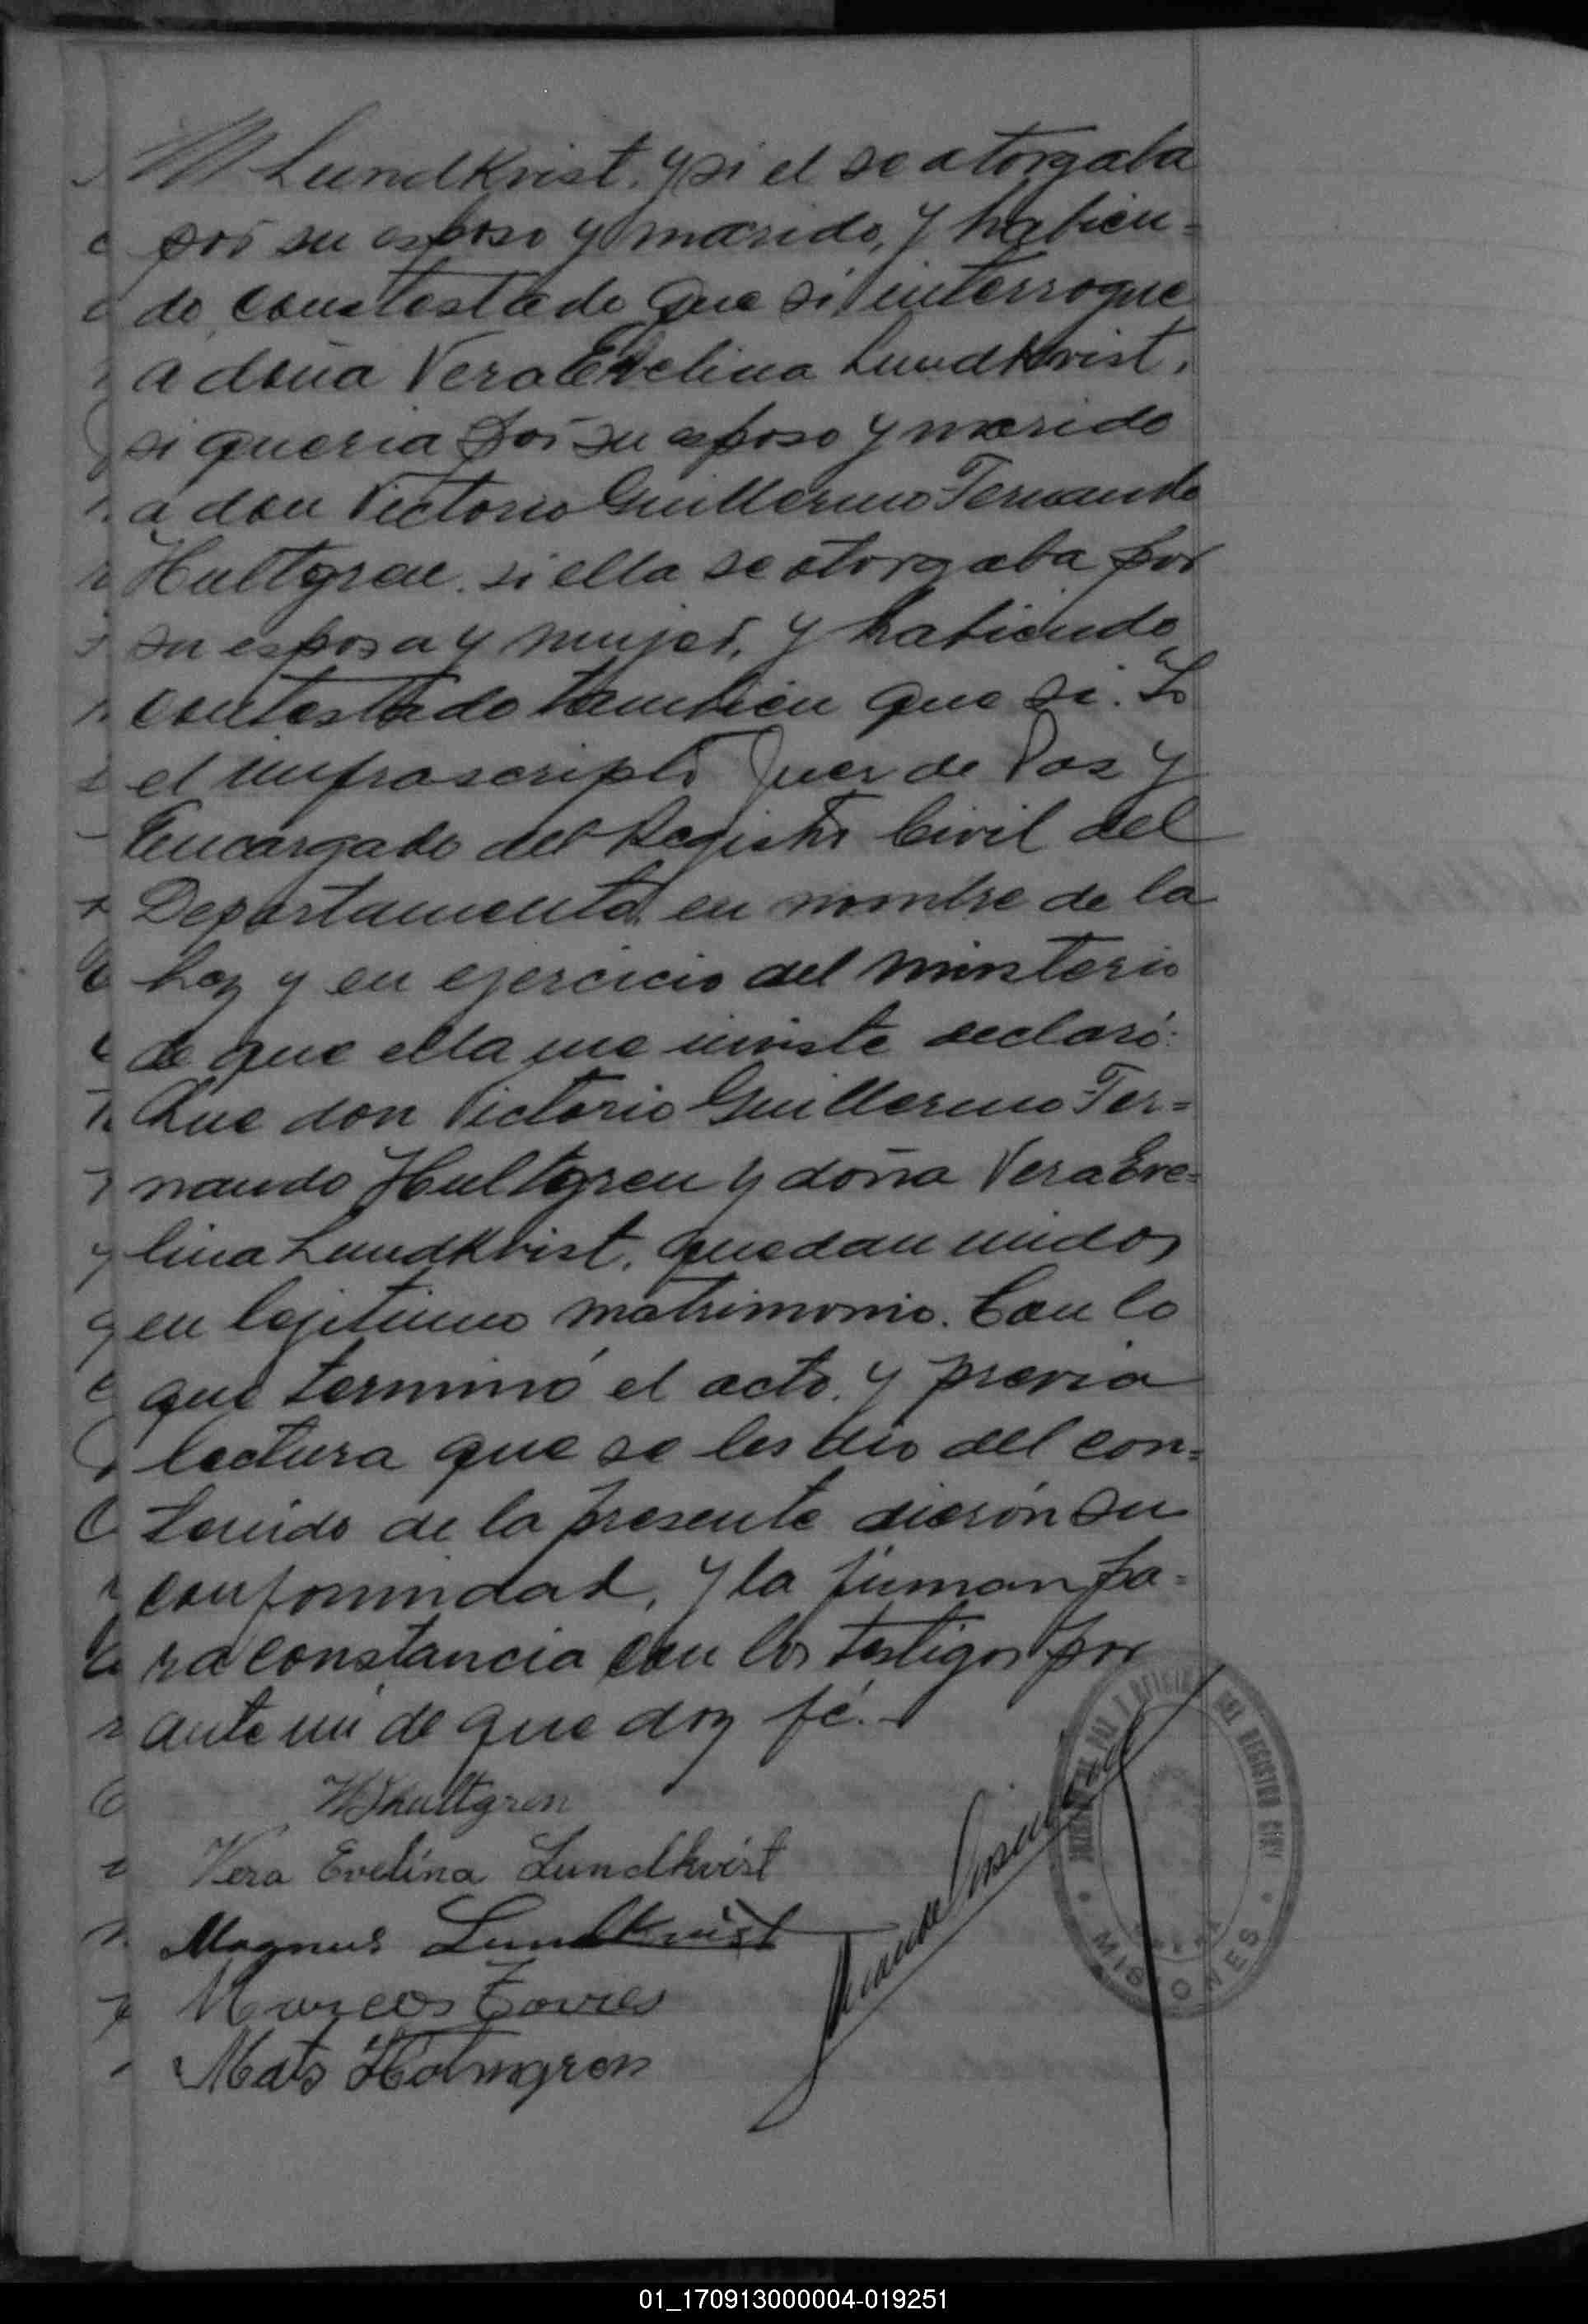 Lundkvist, y si el se otorgaba
por su esposo y marido, y habien=
do constestado que si interrogue
a doña Vera Evelina Lundkvist,
si queria por su esposo y marido
a don Victorio Guillermo Fernando
Hultgren. si ella se otorgaba por
su esposa y mujer, y habiendo
contestado tambien que si. Yo
el infrascripto Juez de Paz y
Encargado del Registro Civil del
Departamento, en nombre de la
Ley y en ejercicio del ministerio
de que ella me inviste declaró:
Que don Victorio Guillermo Fer=
nando Hultgren y doña Vera Eve=
lina Lundkvist, quedan unidos
en lejitimo matrimonio. Con lo
que terminó el acto. y previa
lectura que se les dio del con=
tenido de la presente dierón su
conformidad, y la firman pa=
ra constancia con los testigos por
ante mi de que doy fé.-
Hultgren
Vera Evelina Lundkvist
Magnus Lundkvist
Marcos
Mats Holmgren
DE PAZ Y OFICINA DEL REGISTRO CIVIL
MISIONES
01_170913000004-019251